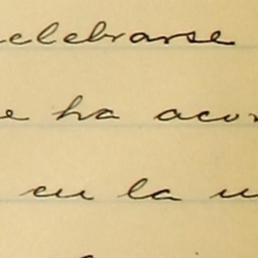 celebrarse
e ha acor
en la